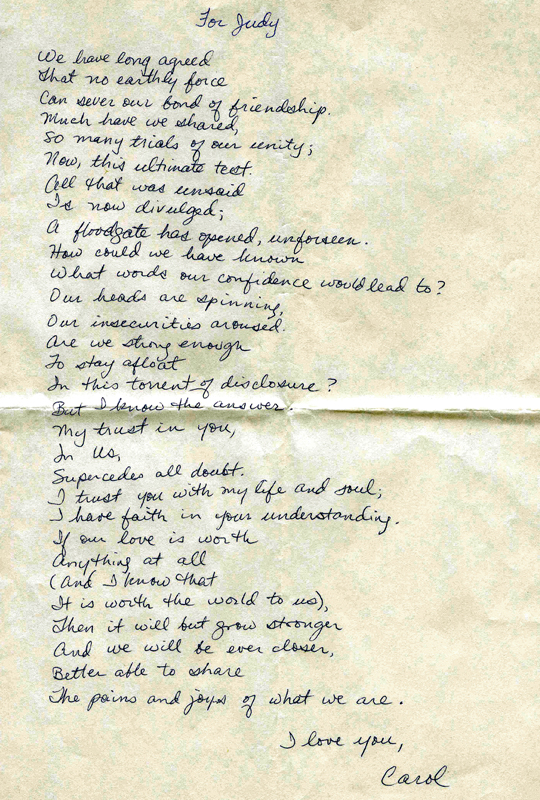 For Judy
We have long agreed
That no earthly force
Can sever our bond of friendship.
Much have we shared,
So many trials of our unity;
Now, this ultimate test.
All that was unsaid
Is now divulged;
A floodgate has opened, unforseen.
How could we have known
What words our confidence would lead to?
Our heads are spinning,
Our insecurities aroused.
Are we strong enough
To stay afloat
In this torrent of disclosure?
But I know the answer.
My trust in you,
In us,
Supercedes all doubt.
I trust you with my life and soul;
I have faith in your understanding.
If our love is worth
Anything at all
(And I know that
It is worth the world to us),
Then it will but grow stronger
And we will be ever closer,
Better able to share
The pains and joys of what we are.
I love you,
Carol